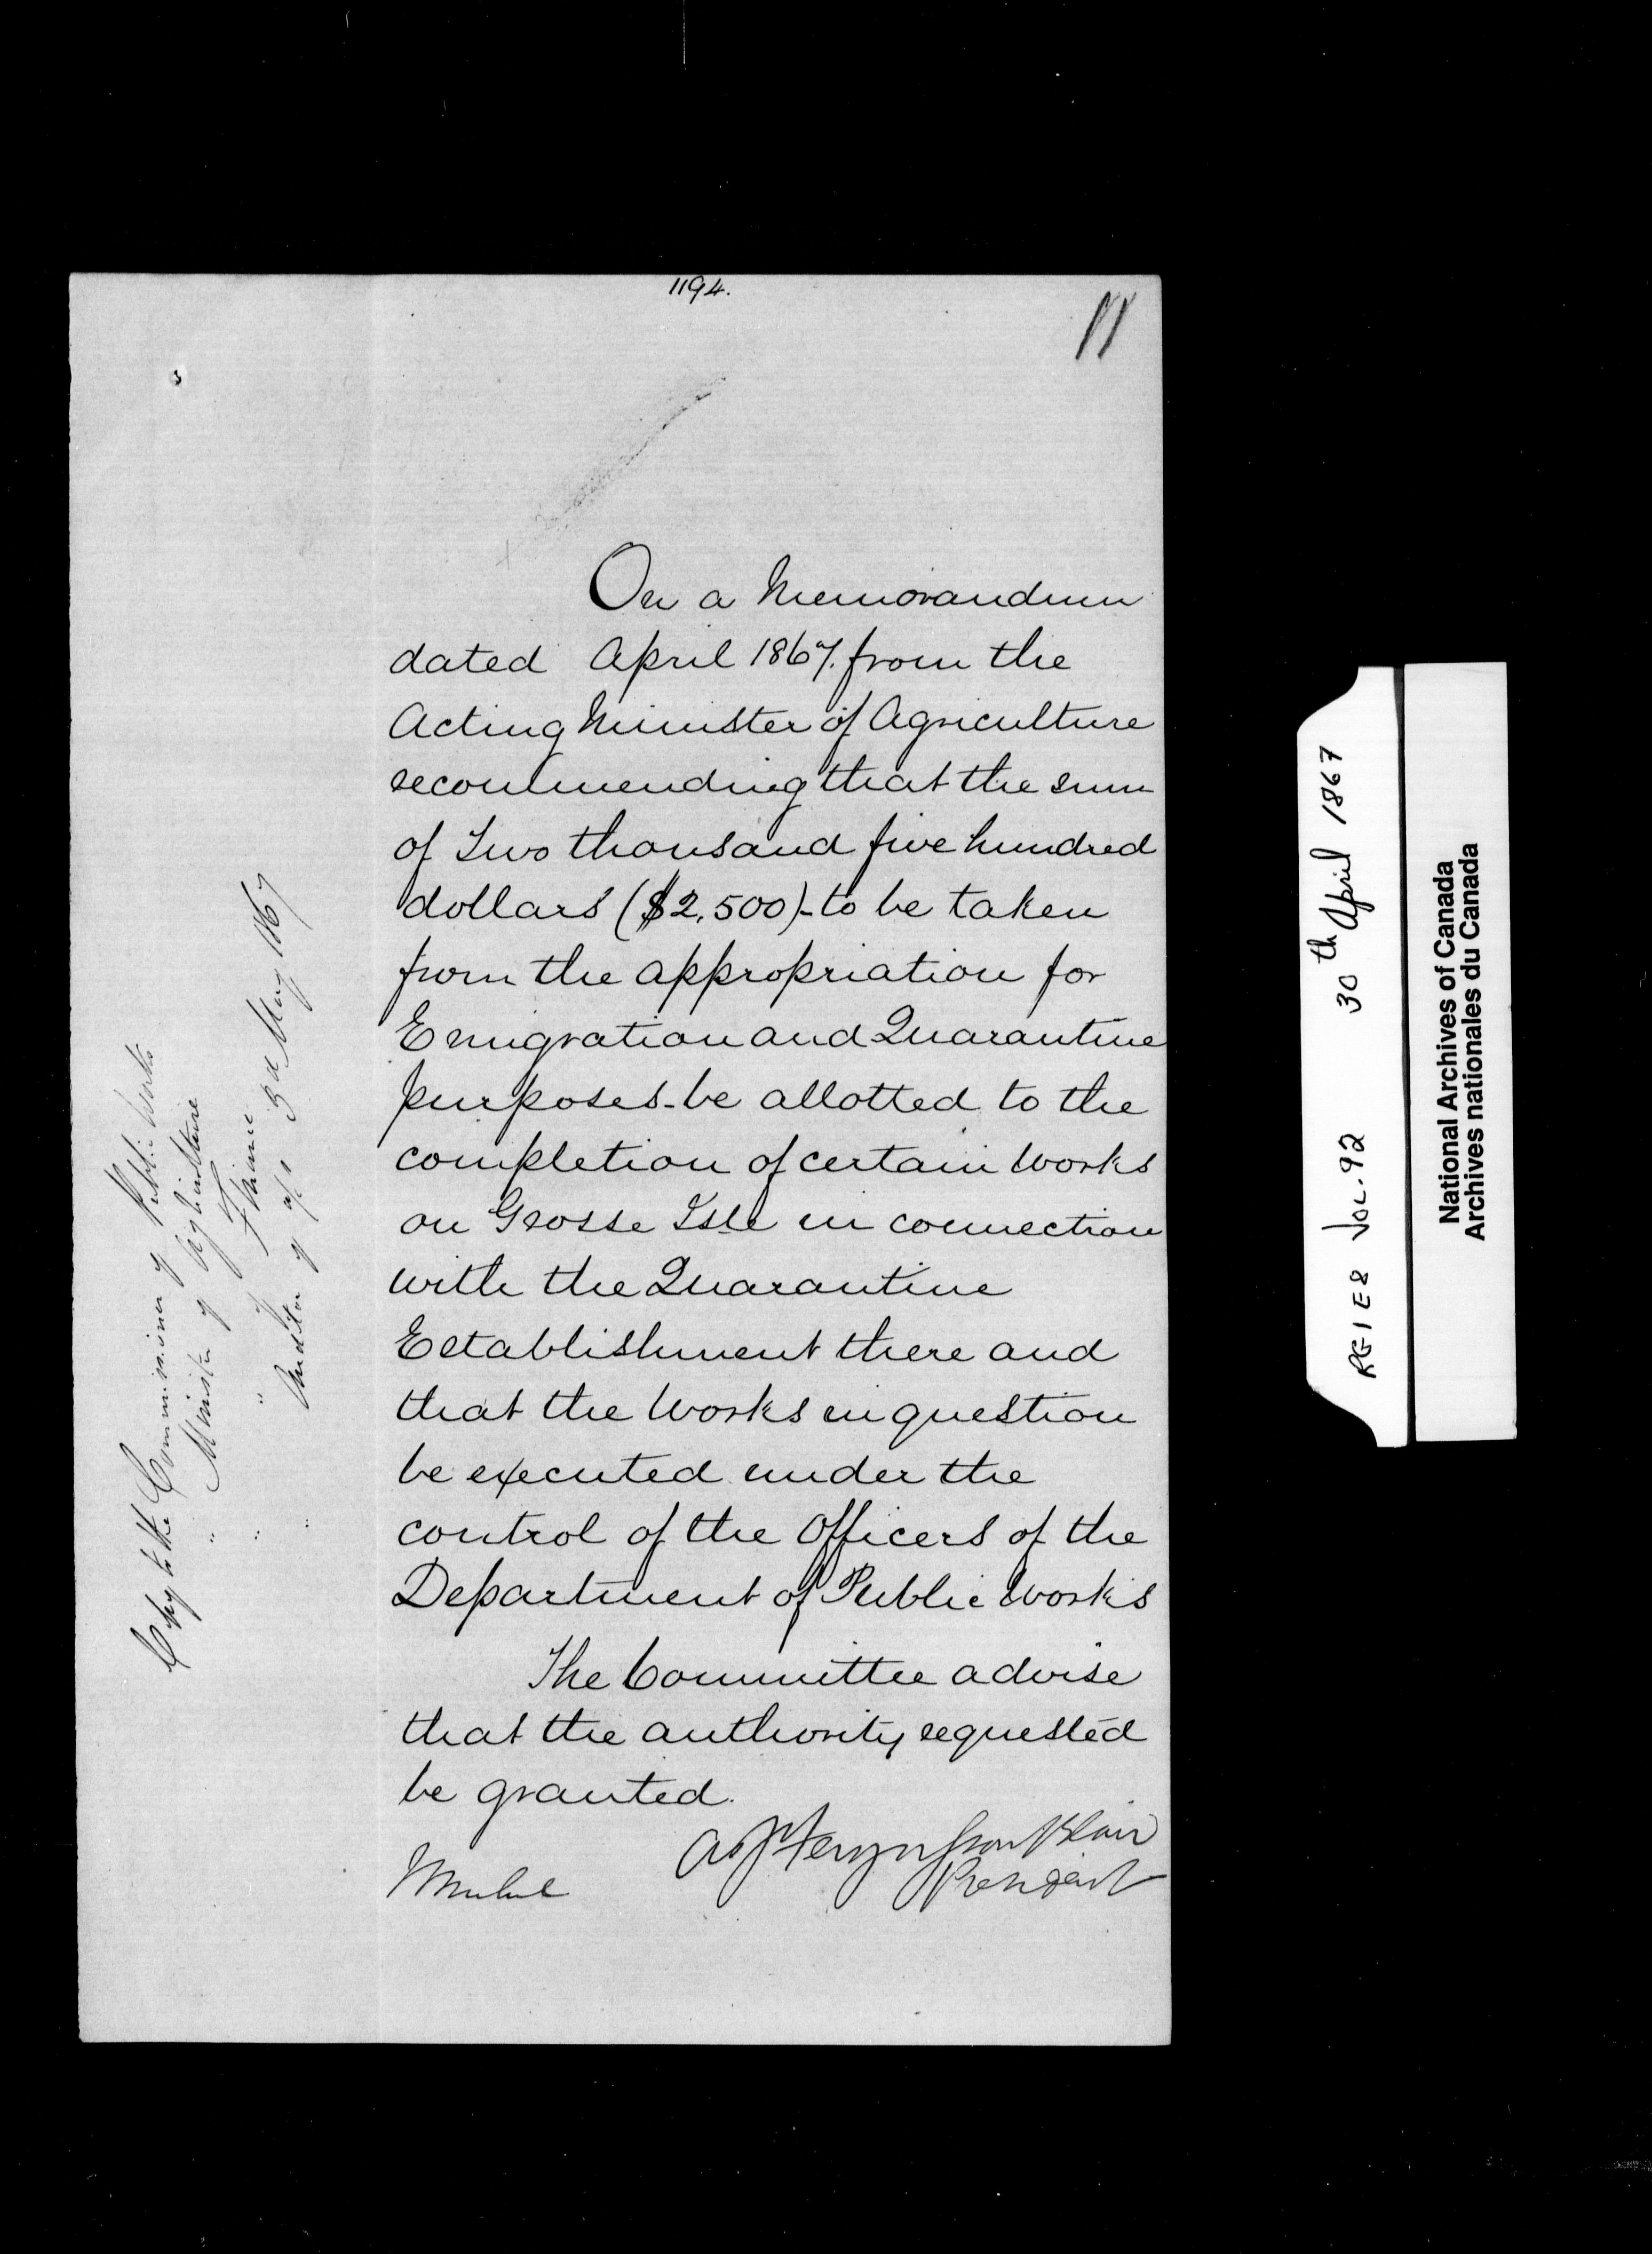 1194.
11
On a Memorandum
dated April 1867. from the
Acting Minister of Agriculture
recommending that the sum
of Two thousand five hundred
dollars ($2,500)-to be taken
from the appropriation for
Emigration and Quarantine
purposes-be allotted to the
completion of certain Works
on Grosse Isle in connection
with the Quarantine
Establishment there and
that the Works in question
be executed under the
control of the Officers of the
Department of Public Works
The Committee advise
that the authority requested
be granted.
A J Fergusson Blair
President
Copy to the Commissioner of Public Works
" Minister of Agriculture
" " of Finance
" Auditor of a/cs 3d May 1867
RG1 E8 VOL. 92 30th April 1867
National Archives of Canada
Archives nationales du Canada